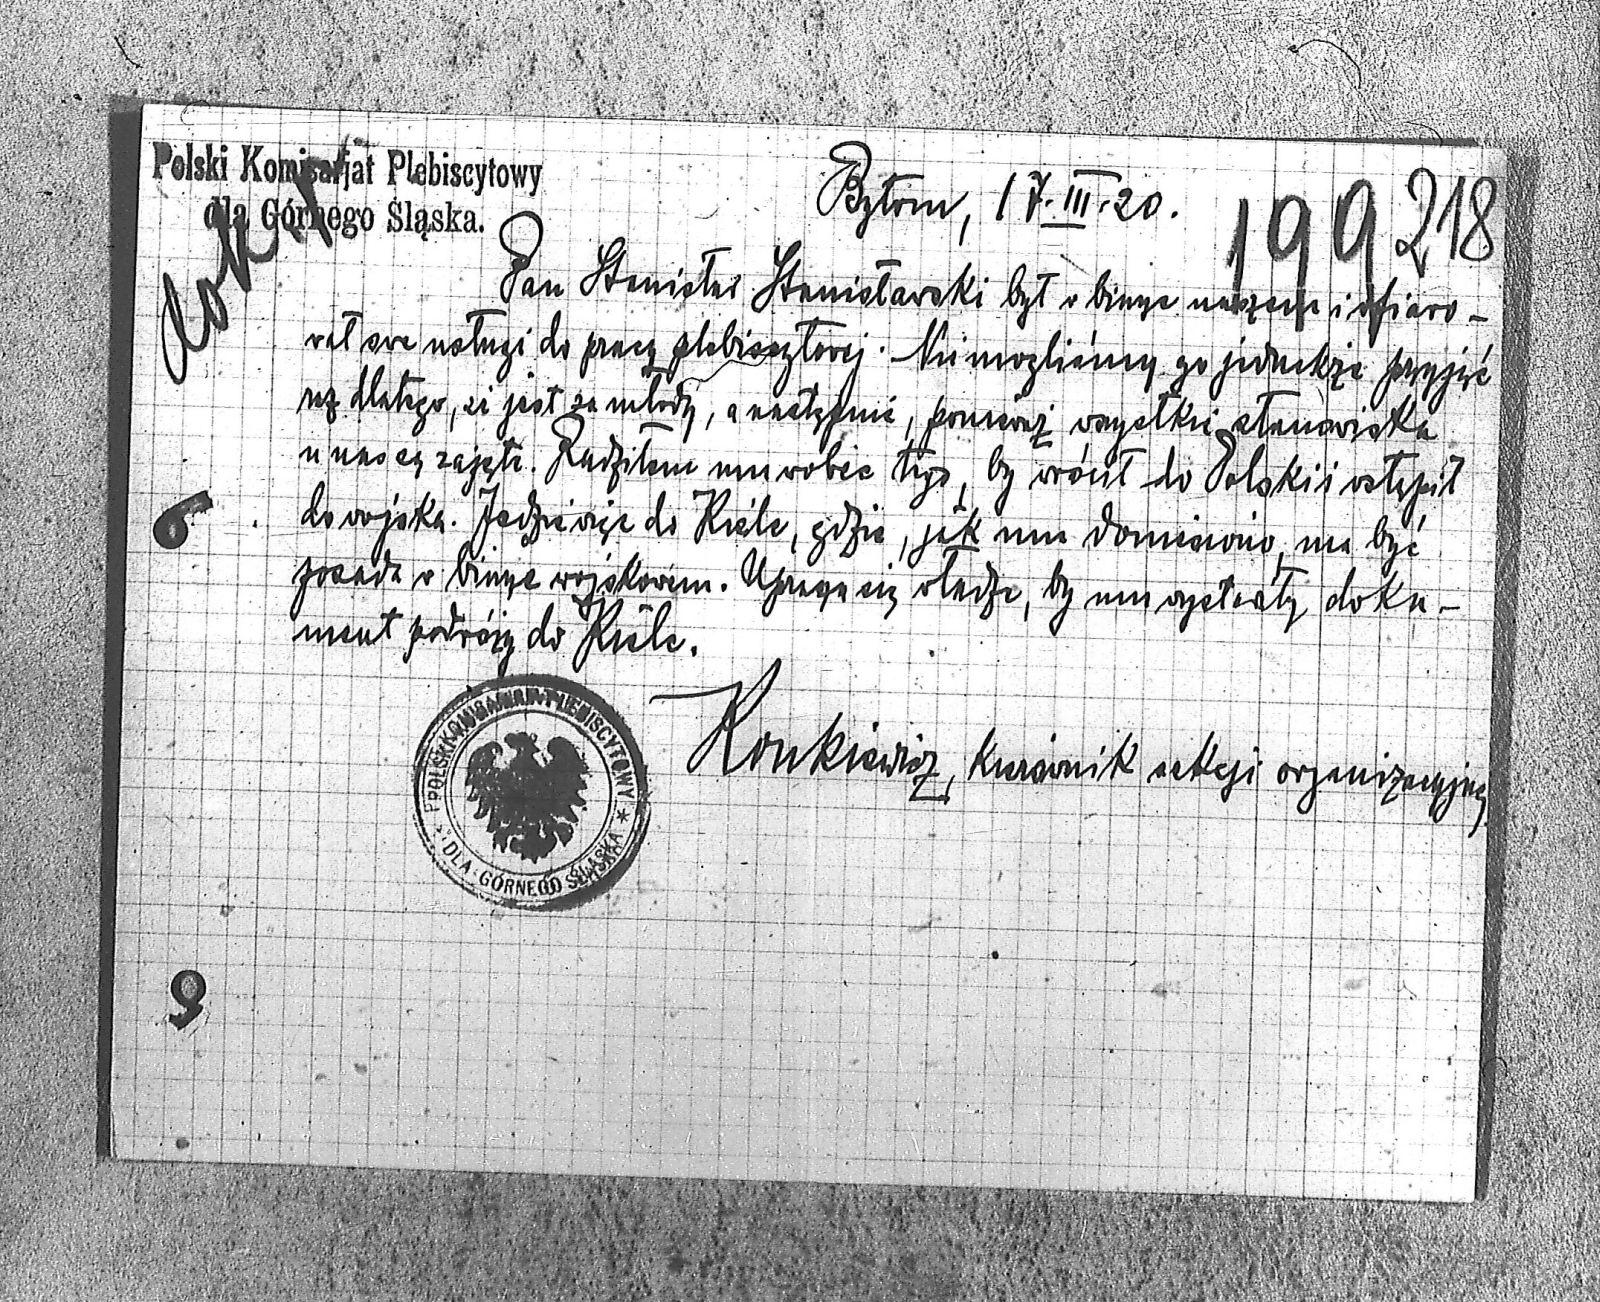 Polski Komisarjat Plebiscytowy
dla Górnego Śląska.
Bytom, 17.III.20.
199 218
Pan Stanisław Stanisławski był w biurze naszem i ofiaro-
wał swe usługi do pracy plebiscytowej. Nie mogliśmy go jednakże przyjąć
raz dlatego, że jest za młody, a następnie, ponieważ wszystkie stanowiska
u nas są zajęte. Radziłem mu wobec tego, by wrócił do Polski i wstąpił
do wojska. Jedzie więc do Kielc, gdzie, jak mu doniesiono, ma być
posada w biurze wojskowem. Uprasza się władze, by mu wystawiły doku-
ment podróży do Kielc.
Konkiewicz, kierownik sekcji organizacyjnej
POLSKI KOMISARJAT PLEBISCYTOWY
DLA GÓRNEGO ŚLĄSKA
6
9